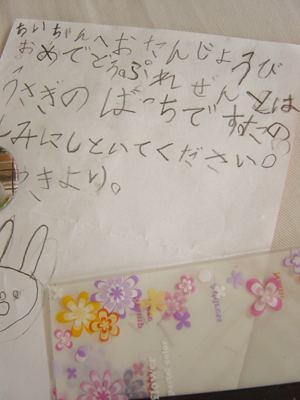 ちいちゃんへおたんじょうび
おめでとう。ぷれぜんとは
うさぎの ばっちです。たの
しみにしといてください。
ゆきより。